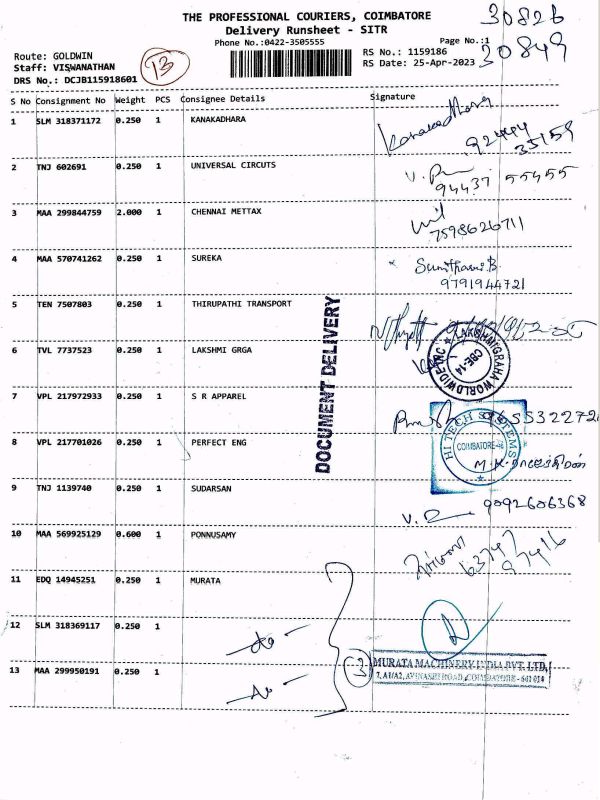 THE PROFESSIONAL COURIERS, COIMBATORE
Delivery Runsheet - SITR
Phone No.:0422-3505555
Page No.:1
30826
30849
Route: GOLDWIN
Staff: VISWANATHAN
DRS No.: DCJB115918601
13
RS No.: 1159186
RS Date: 25-Apr-2023
S No Consignment No Weight PCS Consignee Details Signature
1 SLM 318371172 0.250 1 KANAKADHARA Kanakadhara
92444
35159
2 TNJ 602691 0.250 1 UNIVERSAL CIRCUTS
94437 55455
3 MAA 299844759 2.000 1 CHENNAI METTAX
7598626711
4 MAA 570741262 0.250 1 SUREKA
9791944721
5 TEN 7507803 0.250 1 THIRUPATHI TRANSPORT
DOCUMENT DELIVERY
6 TVL 7737523 0.250 1 LAKSHMI GRGA
LAKSHMIGRAHA WORLDWIDE INC
CBE-14
7 VPL 217972933 0.250 1 S R APPAREL
8 VPL 217701026 0.250 1 PERFECT ENG
HI TECH SYSTEMS
COIMBATORE
9 TNJ 1139740 0.250 1 SUDARSAN
9092606368
10 MAA 569925129 0.600 1 PONNUSAMY
63747
97416
11 EDQ 14945251 0.250 1 MURATA
12 SLM 318369117 0.250 1
do
3
MURATA MACHINERY INDIA PVT. LTD,
7, A1/A2, AVINASHI ROAD, COIMBATORE - 641 014
13 MAA 299950191 0.250 1
do